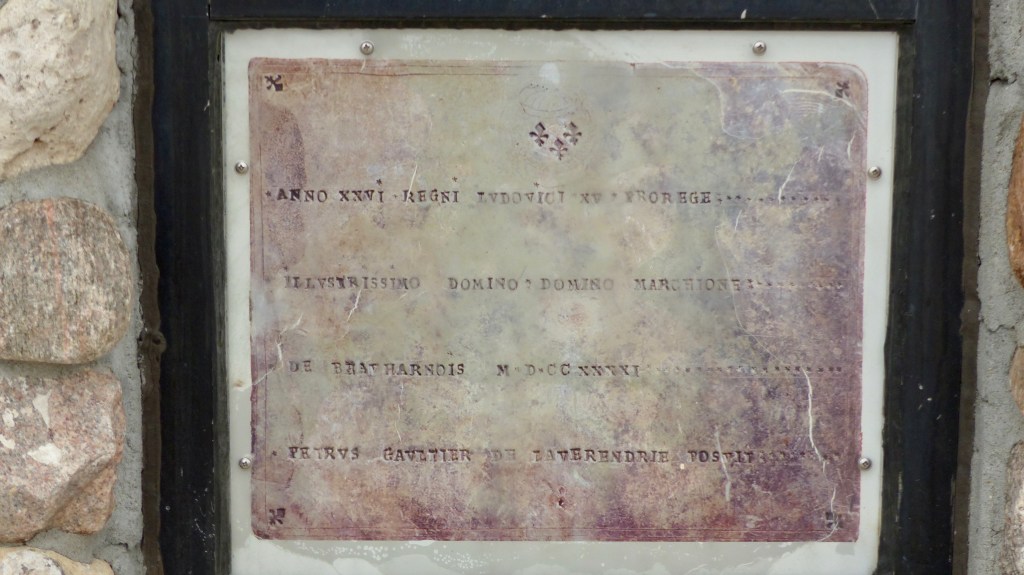 · ANNO XXVI · REGNI LVDOVICI XV · PROREGE · · · · · · · · · ·
ILLVSTRISSIMO DOMINO · DOMINO MARCHIONE · · · · · · · ·
DE BEAVHARNOIS M · D · CC XXXXI · · · · · · · · · · · · · · ·
· PETRVS GAVLTIER DE LAVERENDRIE POSVIT · · · · · ·